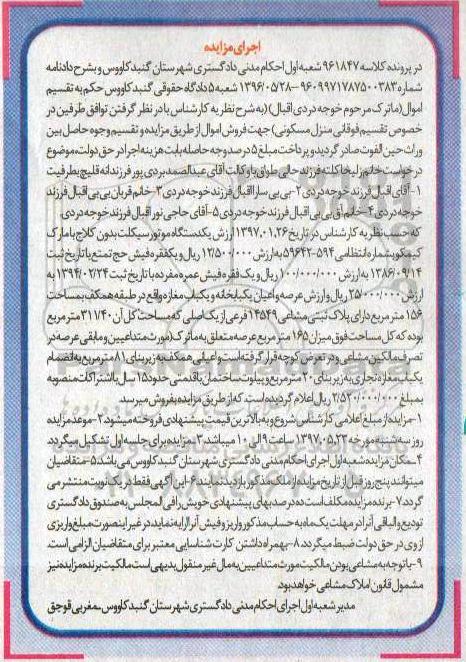 اجرای مزایده
در پرونده کلاسه ۹۶۱۸۴۷ شعبه اول احکام مدنی دادگستری شهرستان گنبدکاووس و بشرح دادنامه
شماره ۹۶۰۹۹۷۱۷۸۷۵۰۰۳۸۳-۱۳۹۶/۰۵/۲۸ شعبه ۵ دادگاه حقوقی گنبدکاووس حکم به تقسیم
اموال (ماترک مرحوم خوجه دردی اقبال) (به شرح نظریه کارشناس با در نظر گرفتن توافق طرفین در
خصوص تقسیم فوقانی منزل مسکونی) جهت فروش اموال از طریق مزایده و تقسیم وجوه حاصل بین
وراث حین الفوت صادر گردیده و پرداخت مبلغ ۵ درصد وجه حاصله بابت هزینه اجرا در حق دولت، موضوع
درخواست خانم زلیخا کلته فرزند حالی طواق با وکالت آقای عبدالصمد بردی پور فرزند انه قلیچ بطرفیت
۱- آقای اقبال فرزند خوجه دردی ۲-بی بی سارا اقبال فرزند خوجه دردی ۳- خانم قربان بی بی اقبال فرزند
خوجه دردی ۴-خانم اق بی بی اقبال فرزند خوجه دردی ۵-آقای حاجی نور اقبال فرزند خوجه دردی.
که حسب نظریه کارشناس در تاریخ ۱۳۹۷.۰۱.۲۶ ارزش یکدستگاه موتورسیکلت بدون کلاج با مارک
کیمکو بشماره انتظامی ۵۹۴-۵۹۶۴۲ به ارزش ۱۲/۵۰۰/۰۰۰ ریال و یکفقره فیش حج تمتع با تاریخ ثبت
۱۳۸۶/۰۹/۱۴ به ارزش ۱۰۰/۰۰۰/۰۰۰ ریال و یک فقره فیش عمره مفرده با تاریخ ثبت ۱۳۹۴/۰۲/۲۴ به
ارزش ۲۵/۰۰۰/۰۰۰ ریال و ارزش عرصه و اعیان یکبابخانه و یکباب مغازه واقع در طبقه همکف بمساحت
۱۵۶ مترمربع دارای پلاک ثبتی مشاعی ۱۴۵۴۹ فرعی از یک اصلی که بمساحت کل آن ۳۱۱/۴۰ مترمربع
بوده که کل مساحت فوق میزان ۱۶۵ مترمربع عرصه متعلق به ماترک (مورث متداعیین و مابقی عرصه در
تصرف مالکین مشاعی و در تعریض کوچه قرار گرفته است و اعیانی همکف به زیربنای ۸۱ مترمربع به انضمام
یکباب مغازه تجاری به زیربنای ۲۰ مترمربع و پیلوت ساختمان با قدمتی حدود ۱۵ سال با اشتراکات منصوبه
بمبلغ ۲/۵۲۰/۰۰۰/۰۰۰ ریال اعلام گردیده است. که از طریق مزایده بفروش میرسد.
۱-مزایده از مبلغ اعلامی کارشناس شروع و به بالاترین قیمت پیشنهادی فروخته میشود ۲-موعد مزایده
روز سه شنبه مورخه ۱۳۹۷.۰۵.۲۳ ساعت ۹ الی ۱۰ میباشد ۳-مزایده برای جلسه اول تشکیل میگردد
۴-مکان مزایده شعبه اول اجرای احکام مدنی دادگستری شهرستان گنبدکاووس می باشد ۵-متقاضیان
میتوانند پنج روز قبل از تاریخ مزایده از ملک مذکور بازدید نمایند ۶-این آگهی فقط در یک نوبت منتشر می
گردد ۷-برنده مزایده مکلف است ده درصد بهای پیشنهادی خویش را فی المجلس به صندوق دادگستری
تودیع و الباقی آنرا در مهلت یکماه به حساب مذکور واریز و فیش آنرا ارایه نماید در غیر اینصورت مبلغ واریزی
از وی در حق دولت ضبط میگردد ۸-بهمراه داشتن کارت شناسایی معتبر برای متقاضیان الزامی است.
۹-با توجه به مشاعی بودن مالکیت مورث متداعیین به مال غیر منقول بدیهی است مالکیت برنده مزایده نیز
مشمول قانون املاک مشاعی خواهد بود.
مدیر شعبه اول اجرای احکام مدنی دادگستری شهرستان گنبد کاووس-مغربی قوجق